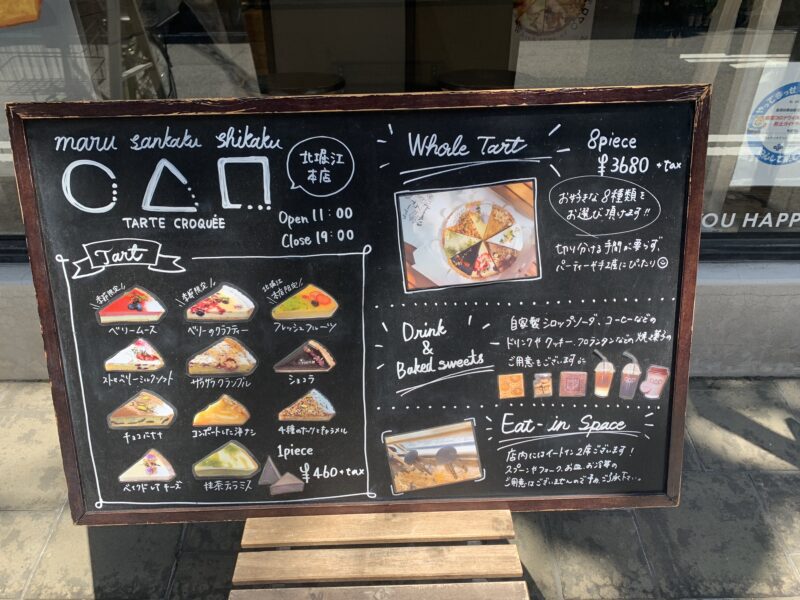 maru sankaku shikaku
北堀江
本店
TARTE CROQUÉE
Open 11:00
Close 19:00
Tart
季節限定
ベリームース
季節限定
ベリーのクラフティー
北堀江
本店限定
フレッシュフルーツ
ストロベリーミルクナッツ
ザクザククランブル
ショコラ
チョコバナナ
コンポートした洋ナシ
4種のナッツとキャラメル
ベイクドレアチーズ
抹茶テラミス
1piece
¥460+tax
Whole Tart
8piece
¥3680+tax
お好きな8種類を
お選び頂けます!!
切り分ける手間が要らず、
パーティーや手土産にぴったり
Drink
&
Baked sweets
自家製シロップソーダ、コーヒーなどの
ドリンクやクッキー、フロランタンなどの焼き菓子の
ご用意もございます
Eat-in Space
店内にはイートイン2席ございます!
スプーンやフォーク、お皿、お冷等の
ご用意はございませんので予め、ご了承下さい。
OU HAPP